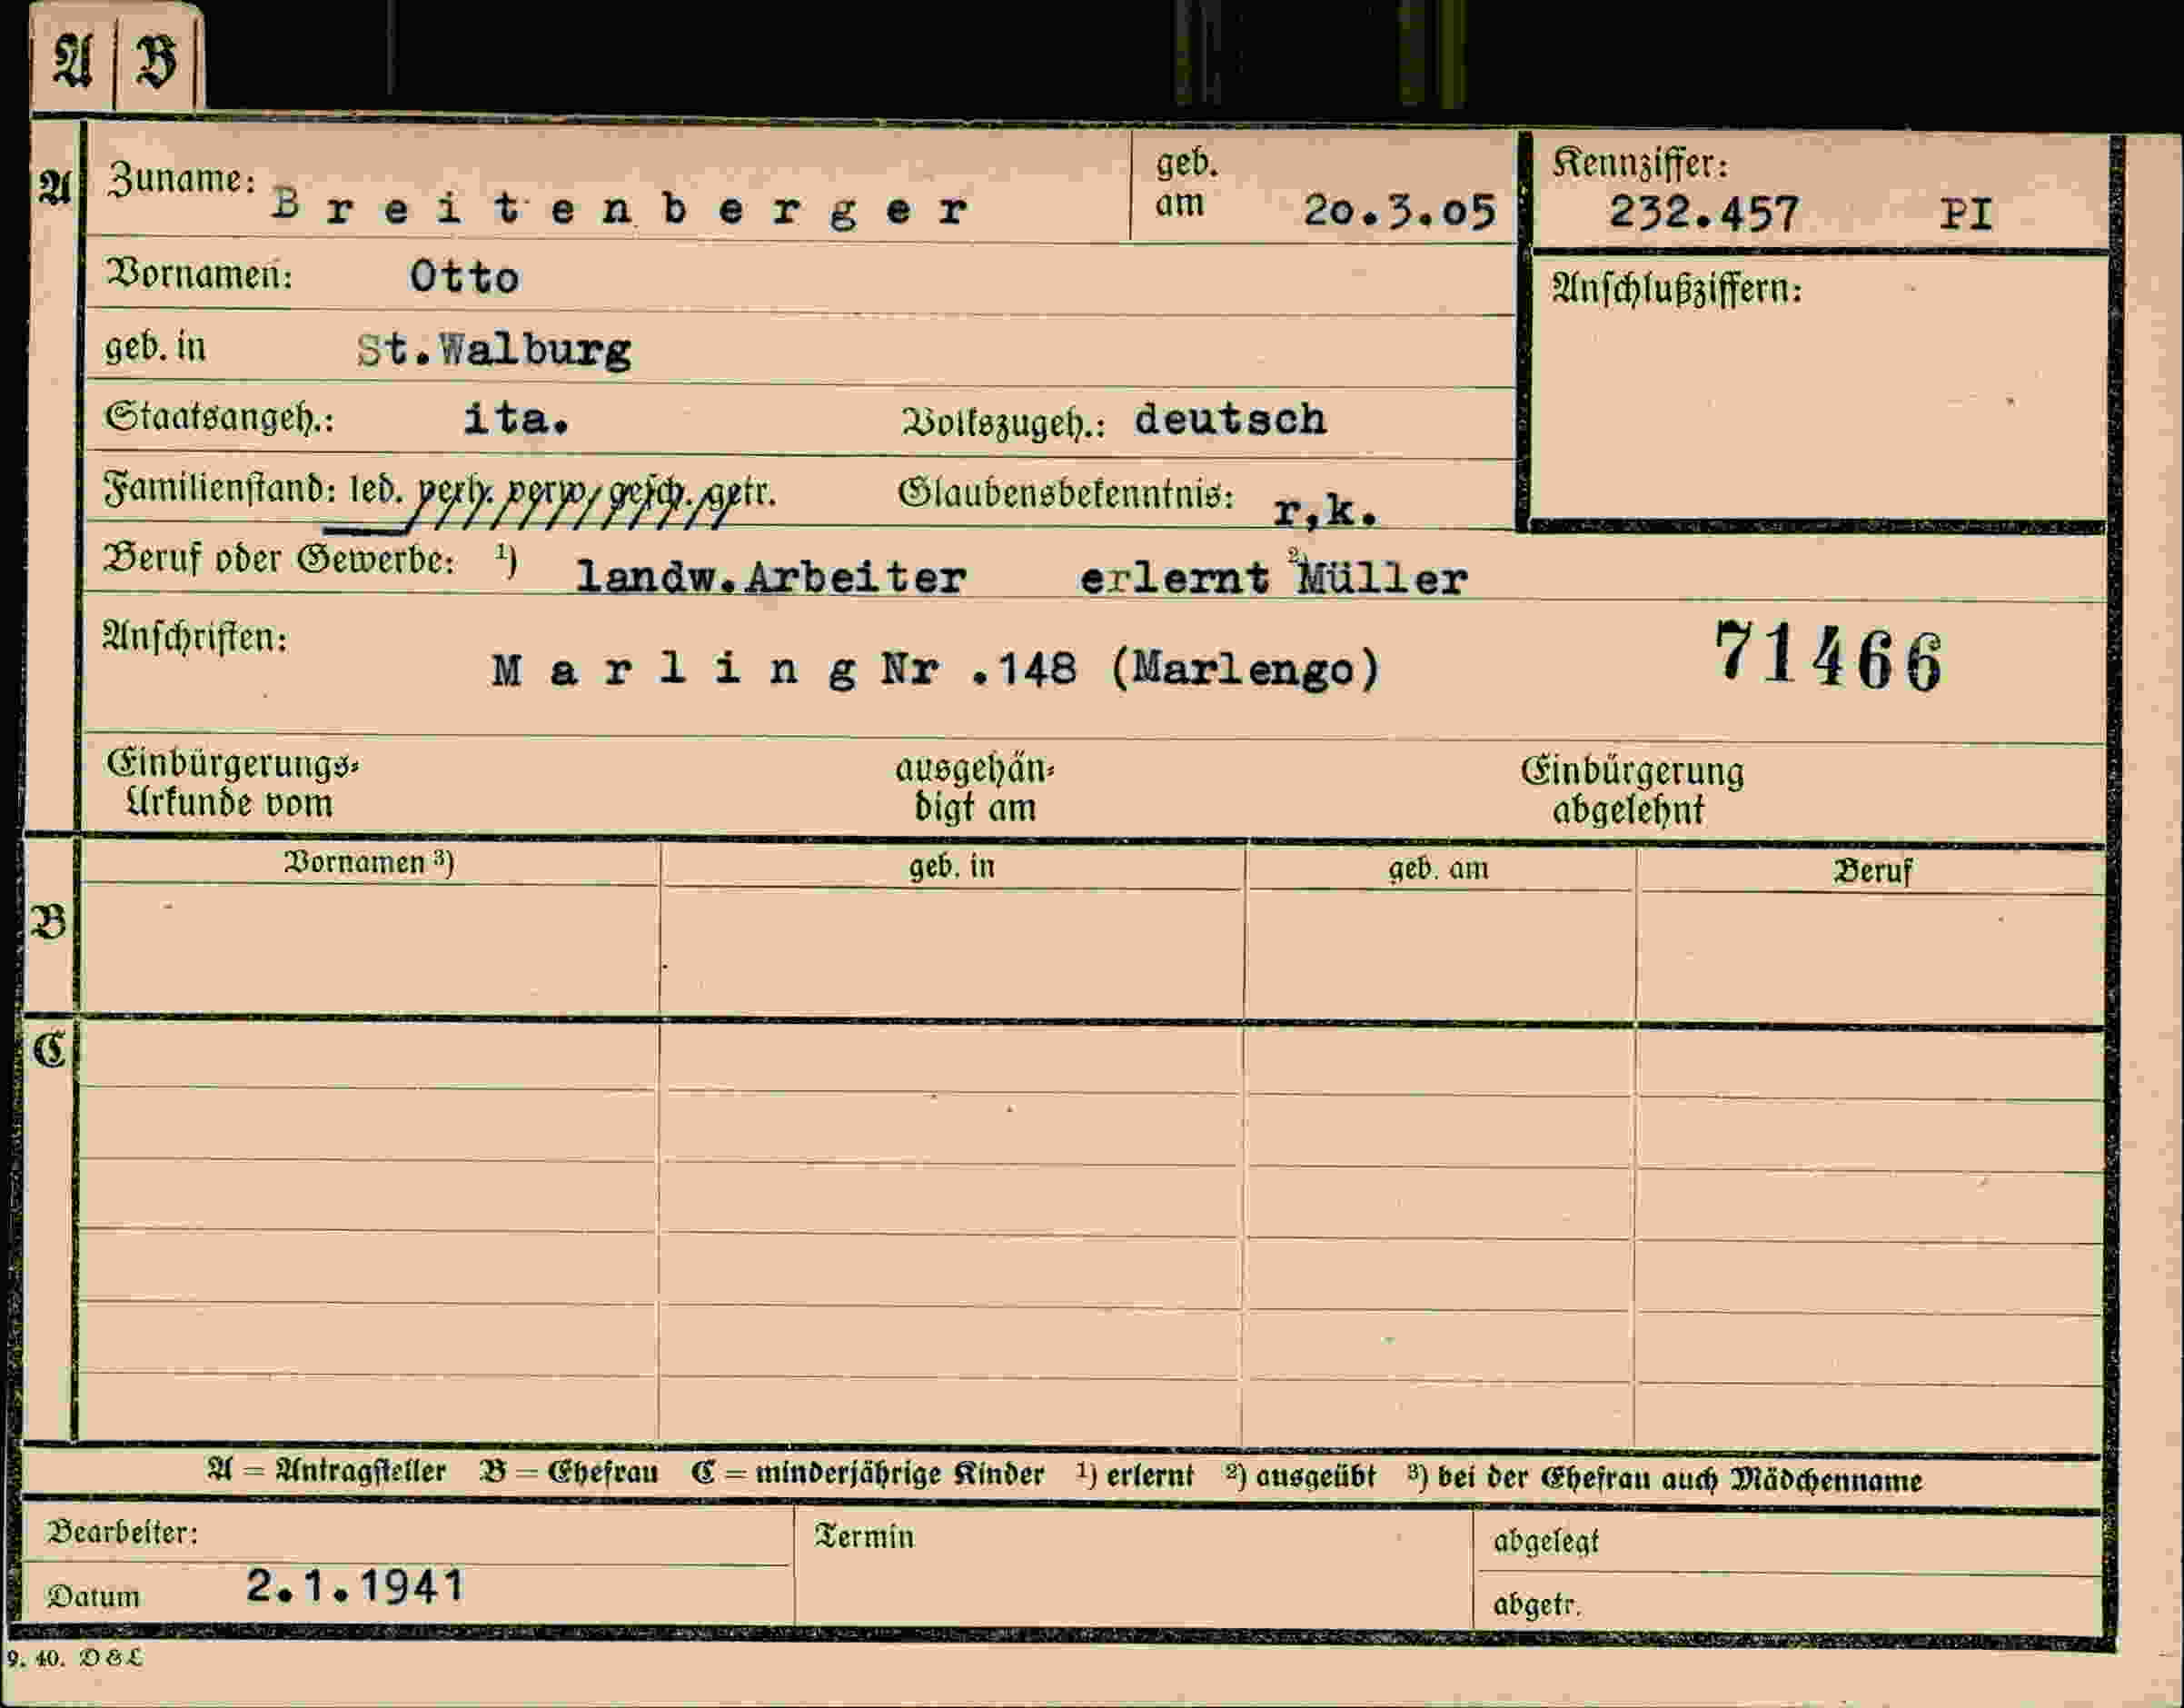 A B
A Zuname: Breitenberger geb. am 20.3.05 Kennziffer: 232.457 PI
Vornamen: Otto Anschlußziffern:
geb. in St.Walburg
Staatsangeh.: ita. Volkszugeh.: deutsch
Familienstand: led. verh. verw. gesch. getr. Glaubensbekenntnis: r,k.
Beruf oder Gewerbe: 1) landw.Arbeiter erlernt 2) Müller
Anschriften: Marling Nr.148 (Marlengo) 71466
Einbürgerungs- ausgehän- Einbürgerung
Urkunde vom digt am abgelehnt
Vornamen 3) geb. in geb. am Beruf
B
C
A = Antragsteller B = Ehefrau C = minderjährige Kinder 1) erlernt 2) ausgeübt 3) bei der Ehefrau auch Mädchenname
Bearbeiter: Termin abgelegt
Datum 2.1.1941 abgetr.
9. 40. D & L